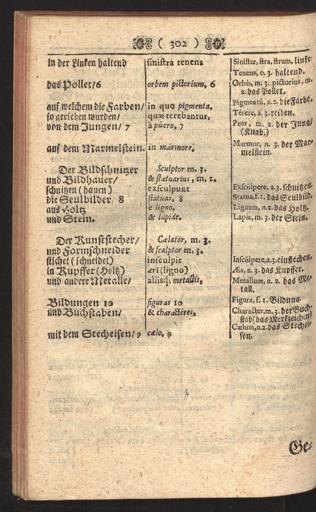 ( 302 )
in der Lincken haltend
das Pollet/6
auf welchem die Farben/
so gerieben wurden/
von dem Jungen/ 7
auf dem Marmelstein.
Der Bildschnitzer
und Bildhauer/
schnitzen (hauen)
die Seulbilder 8
aus Holtz
und Stein.
Der Kunststecher/
und Formschneider
sticht (schneidet)
in Kupffer (Holtz)
und andere Metalle/
Bildungen 10
und Buchstaben/
mit dem Stecheisen/ 9
sinistra tenens
orbem pictorium, 6
in quo pigmenta,
quæ terebantur,
à puero, 7
in marmore.
Sculptor m. 3.
& statuarius, m. 2.
exsculpunt
statuas, 8
è ligno,
& lapide.
Cælator, m. 3.
& scalptor m. 3.
insculpit
æri (ligno)
aliisq; metallis,
figuras 10
& characteres,
cælo, 9
Sinister, stra, strum, linke
Tenens, o. 3. haltend.
Orbis, m. 3. pictorius, m.
2. das Pollet.
Pigmentū, n. 2. die Farbe.
Terere, a. 3. reiben.
Puer, m. 2. der Jung/
(Knab.)
Marmor, n. 3. der Mar-
melstein.
Exsculpere, a. 3. schnitzen
Statua, f. 1. das Seulbild.
Lignum, n. 2. das Holtz.
Lapis, m. 3. der Stein.
Insculpere, a. 3. einstechen.
Æs, n. 3. das Kupffer.
Metallum, n. 2. das Me-
tall.
Figura, f. 1. Bildung.
Character, m. 3. der Buch-
stab (das Merkzeichen)
Cælum, n. 2. das Stechei-
sen.
Ge-